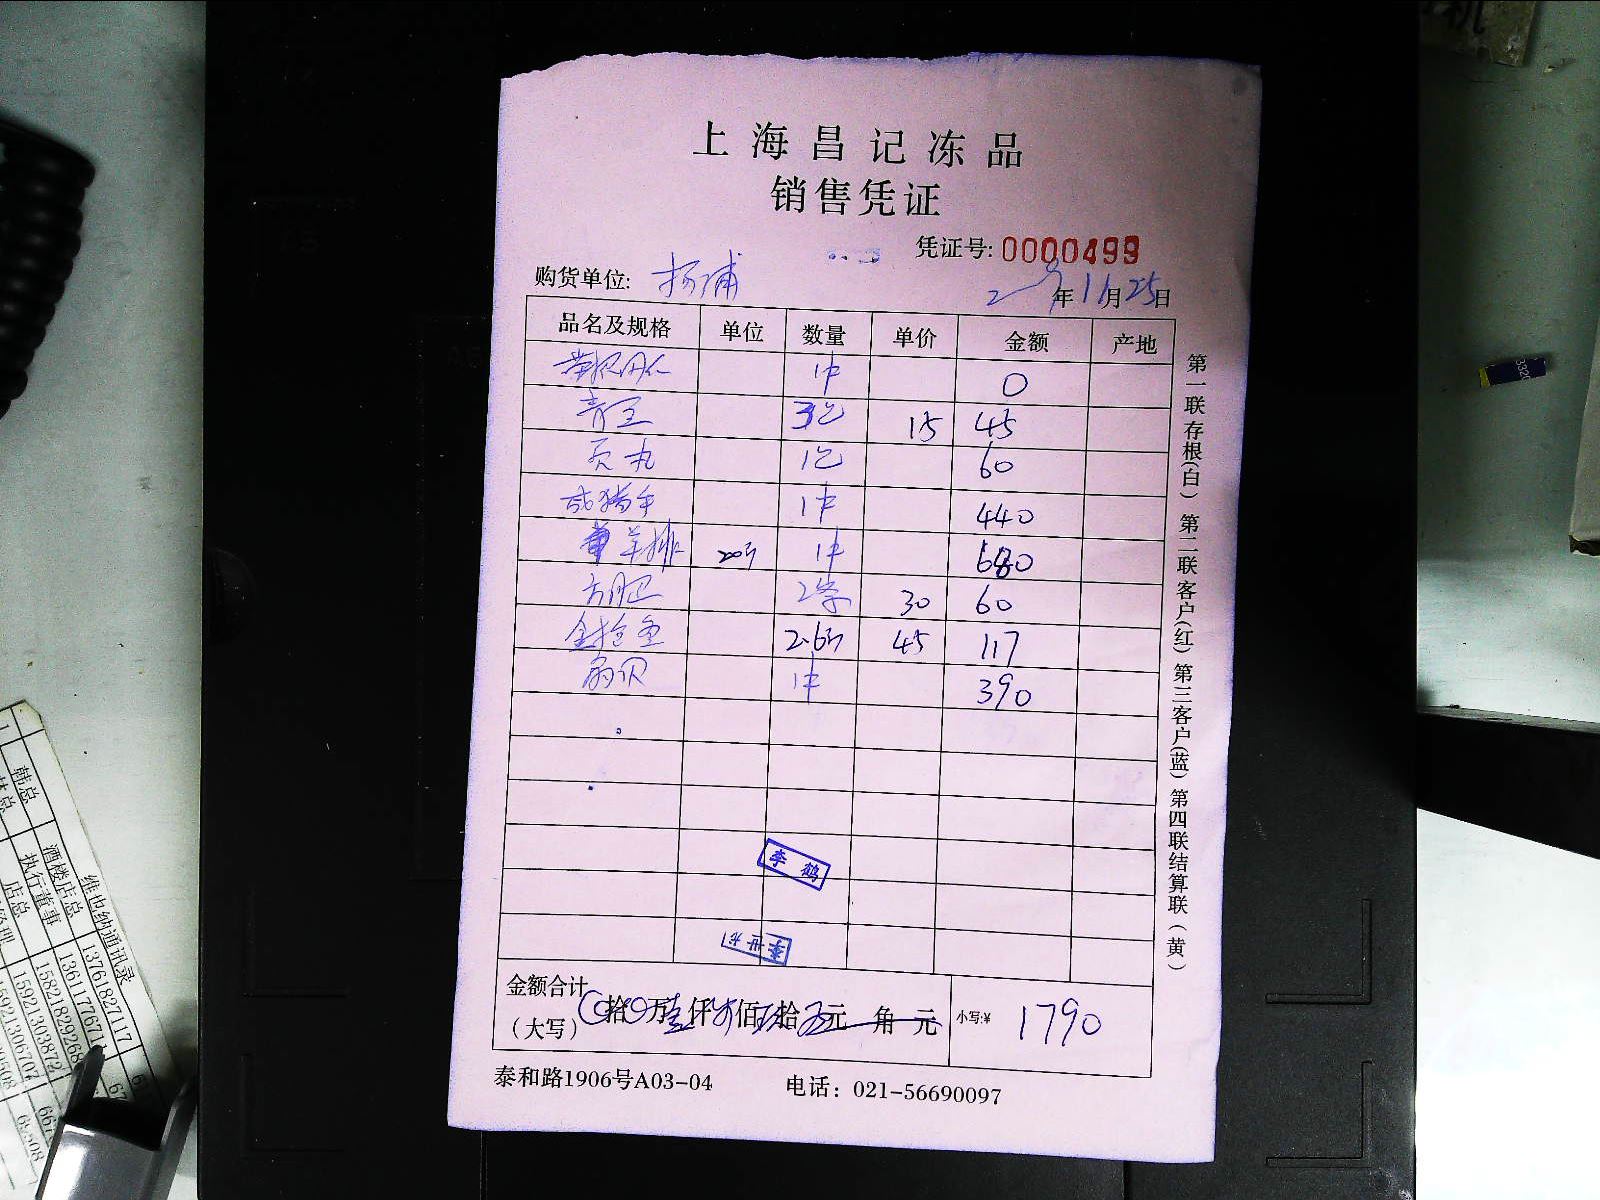 上海昌记冻品
销售凭证
凭证号: 0000499
购货单位: 杨浦 年11月25日
品名及规格 单位 数量 单价 金额 产地
1件 0
青豆 3包 15 45
贡丸 1包 60
咸猪手 1件 440
羊排 20斤 1件 680
方肥 2条 30 60
金枪鱼 2.6斤 45 117
扇贝 1件 390
李鹤
李世龙
金额合计
(大写) 拾 万 仟 佰 拾 元 角 元 小写:¥ 1790
泰和路1906号A03-04 电话: 021-56690097
第一联存根(白) 第二联客户(红) 第三客户(蓝) 第四联结算联(黄)
维也纳通讯录
韩总 酒楼店总 13761827117
执行董事 13611776771
店总 15821829268
15921303872
3320